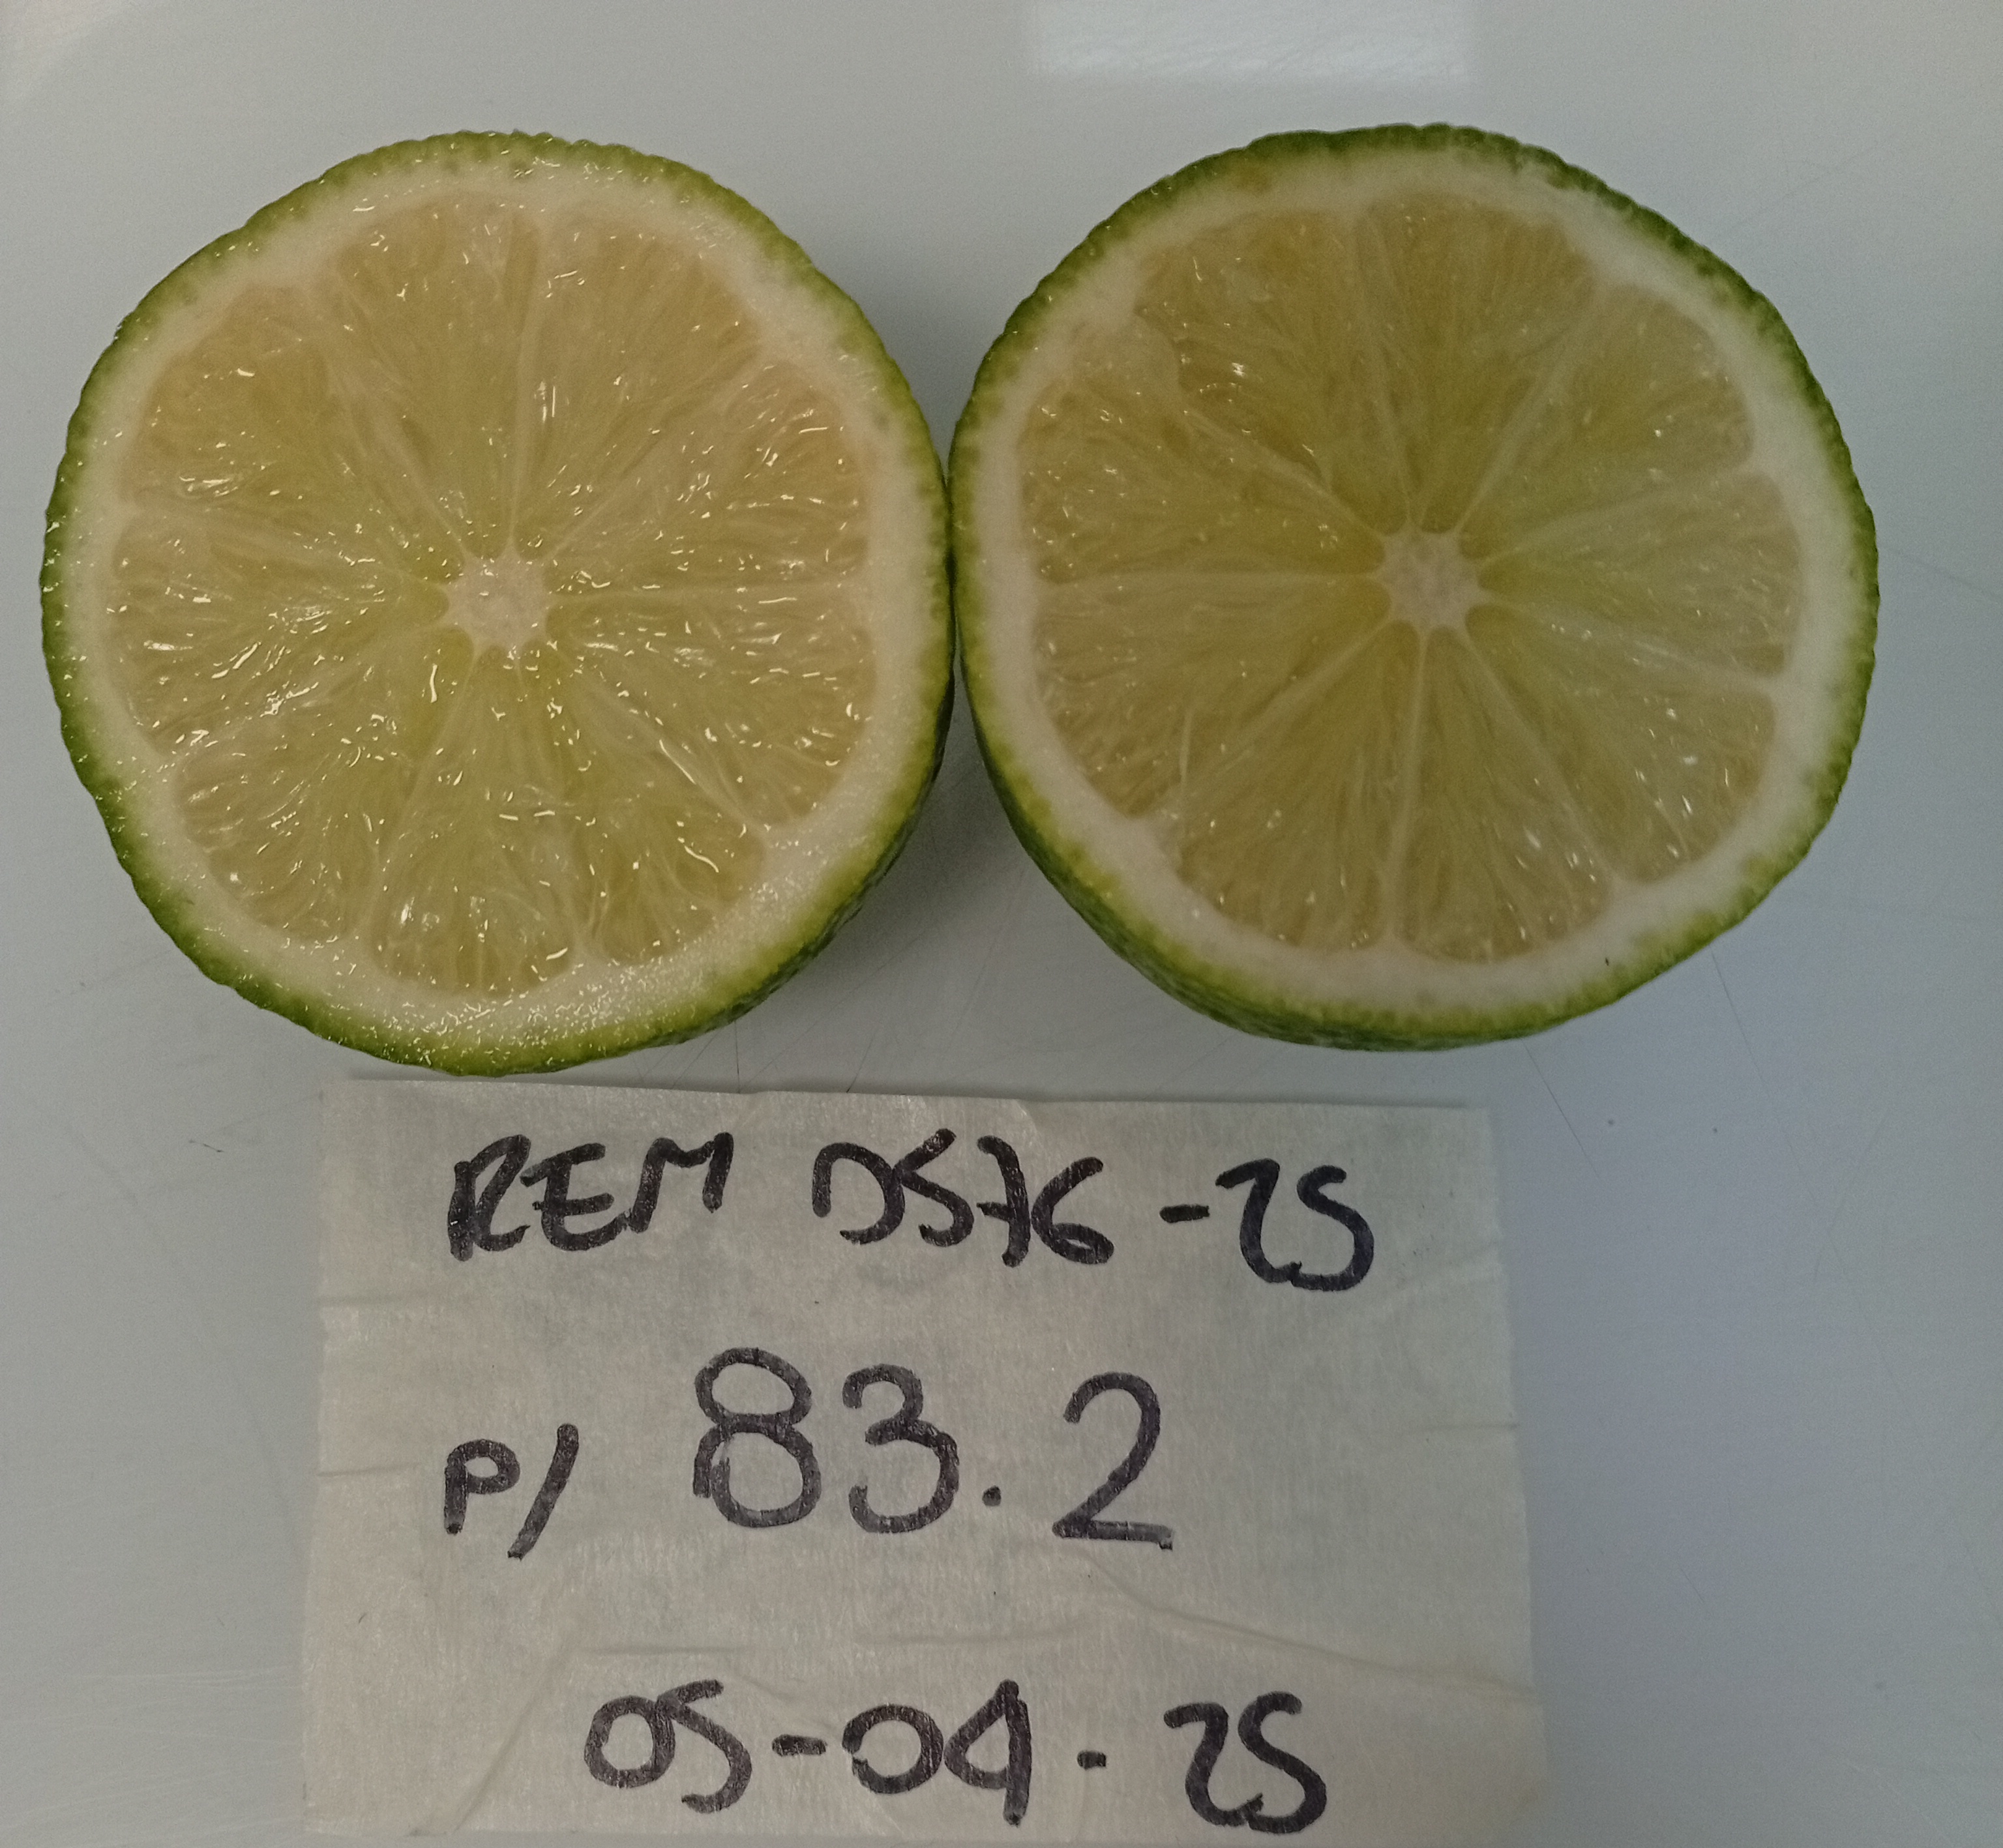 REM DS76-25
P/ 83.2
05-04-25